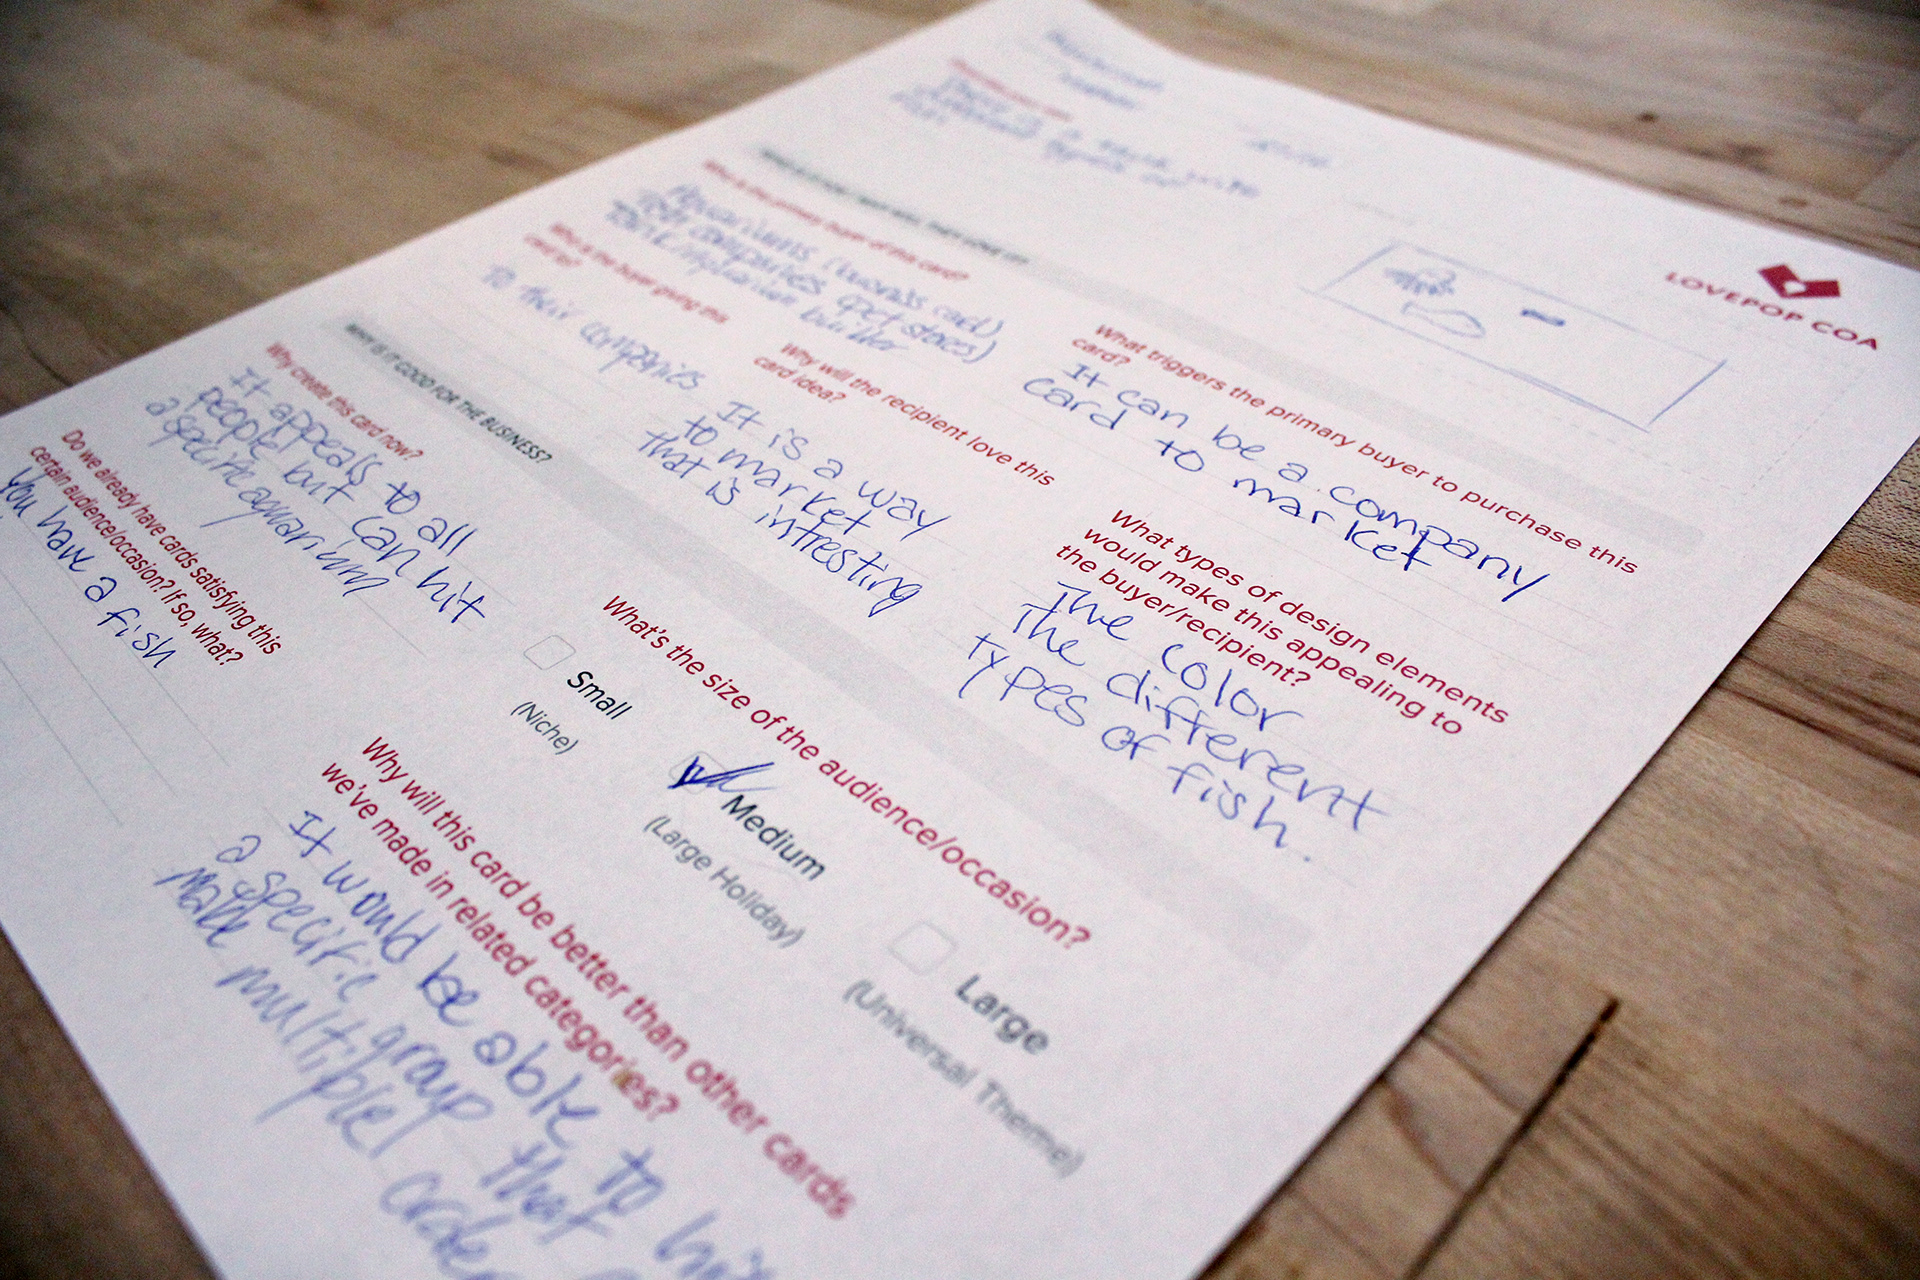 LOVEPOP COA
Who is the primary buyer of this card?
Aquariums (awards card)
companies (pet stores)
builder
What triggers the primary buyer to purchase this
card?
It can be a company
card to market
Who is the buyer giving this
card to?
To their companies
Why will the recipient love this
card idea?
It is a way
to market
that is intresting
What types of design elements
would make this appealing to
the buyer/recipient?
The color
The different
types of fish.
WHY IS IT GOOD FOR THE BUSINESS?
Why create this card now?
It appeals to all
people but can hit
a specific aquarium
What's the size of the audience/occasion?
Small
(Niche)
Medium
(Large Holiday)
Large
(Universal Theme)
Do we already have cards satisfying this
certain audience/occasion? If so, what?
You have a fish
Why will this card be better than other cards
we've made in related categories?
It would be able to hit
a specific group that
make multiple orders